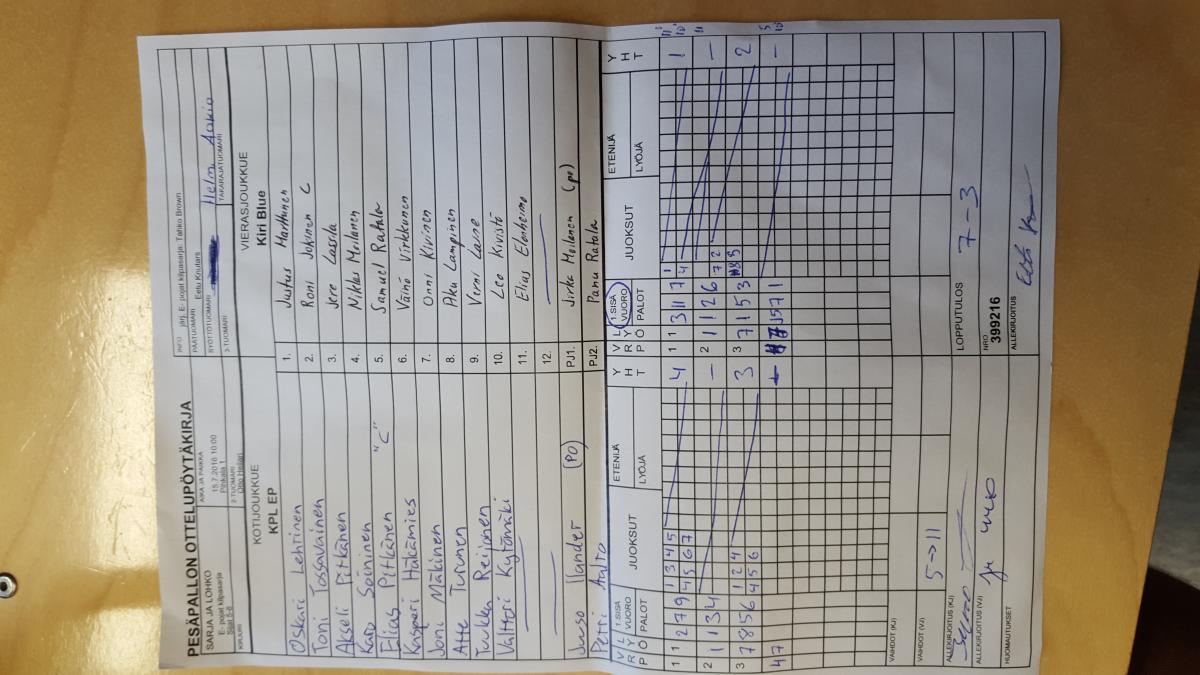 PESÄPALLON OTTELUPÖYTÄKIRJA
SARJA JA LOHKO
E- pojat kilpasarja
Sijat 5-8
KIRJURI
AIKA JA PAIKKA
15.7.2016 10:00
Pihkala 1
2-TUOMARI
Otto Heijari
INFO järj. E- pojat kilpasarja: Tahko Brown
PÄÄTUOMARI Eetu Knutars
SYÖTTÖTUOMARI
3-TUOMARI
Helmi
TAKARAJATUOMARI
KOTIJOUKKUE
KPL EP
VIERASJOUKKUE
Kiri Blue
Oskari Lehtinen 1. Justus Marttunen
Toni Tossavainen 2. Roni Jokinen C
Akseli Pitkänen 3. Jere Lassila
Soininen 4. Niklas Moilanen
Elias Pitkänen "C" 5. Samuel Ratala
Kaspari Häkämies 6. Väinö Virkkunen
Joni Mäkinen 7. Onni Kivinen
Atte Turunen 8. Aku Lampinen
Tuukka Reijonen 9. Verni Laine
Valtteri Kytömäki 10. Leo Kivistö
11. Elias Elonheimo
12.
Juuso Ilander (PO) PJ1. Jirka Moilanen (po)
Petri Aalto PJ2. Panu Ratala
V P L R Y Ö 1.SISÄ VUORO PALOT JUOKSUT ETENIJÄ LYÖJÄ Y H T
V P L R Y Ö 1.SISÄ VUORO PALOT JUOKSUT ETENIJÄ LYÖJÄ Y H T
1 1 2 7 9 1 3 4 5 4
4 5 6 7
1 1 3 11 7 1 1
4
2 1 1 3 4 -
2 1 1 2 6 -
3 7 8 5 6 1 2 4 3
4 5 6
3 7 1 5 3 7 2 2
4 7
1 5 7 1 -
VAIHDOT (KJ)
VAIHDOT (VJ) 5→11
ALLEKIRJOITUS (KJ)
ALLEKIRJOITUS (VJ)
HUOMAUTUKSET
LOPPUTULOS 7-3
NRO
399216
ALLEKIRJOITUS